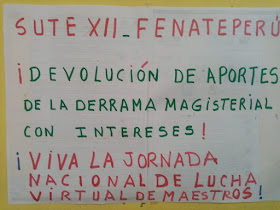 SUTE XII_FENATEPERÚ
¡DEVOLUCIÓN DE APORTES
DE LA DERRAMA MAGISTERIAL
CON INTERESES!
¡VIVA LA JORNADA
NACIONAL DE LUCHA
VIRTUAL DE MAESTROS!